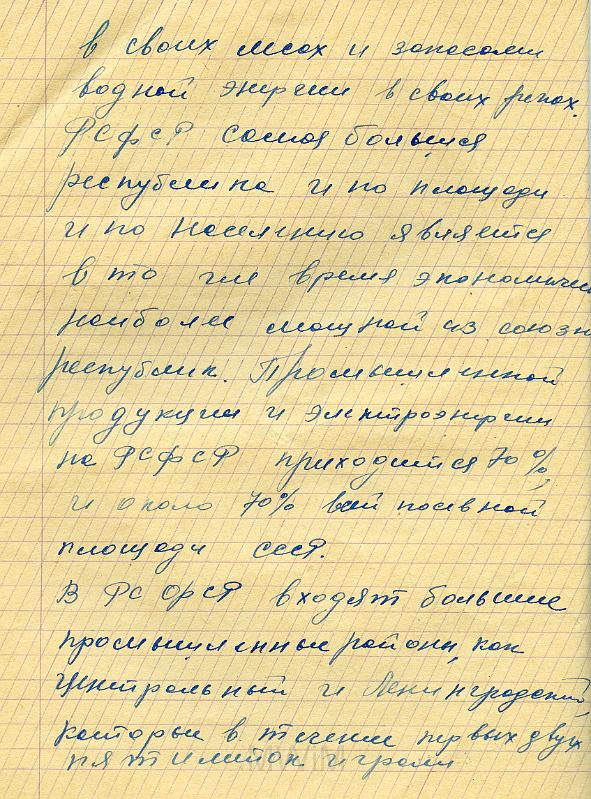 в своих лесах и запасами
водной энергии в своих реках.
РСФСР самая большая
республика и по площади
и по населению является
в то же время экономичес
наиболее мощной из союзн
республик. Промышленной
продукции и электроэнергии
на РСФСР приходится 70%,
и около 70% всей посевной
площади СССР.
В РСФСР входят большие
промышленные районы, как
Центральный и Ленинградский,
которые в течение первых двух
пятилеток играли